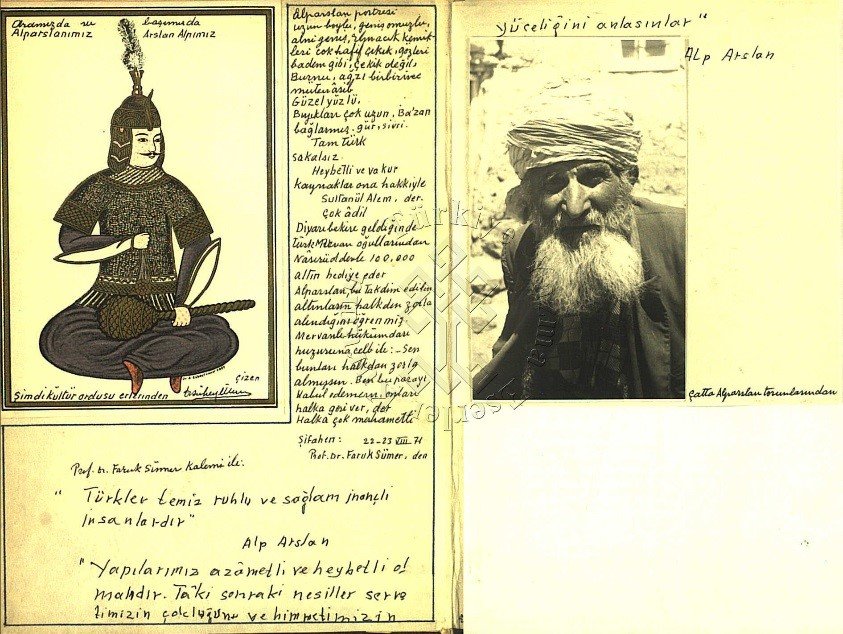 Aramızda ve başımızda
Alparslanımız Arslan Alpımız
çizen
Şimdi kültür ordusu erlerinden
Alparslan portresi
uzun boylu, geniş omuzlu,
alnı geniş, elmacık kemik-
leri çok hafif çekik, gözleri
badem gibi, çekik değil,
Burnu, ağzı birbirine
mütenâsib
Güzel yüzlü,
Bıyıkları çok uzun, Ba'zan
bağlarmış. gür, sivri.
Tam Türk
sakalsız.
Heybetli ve vakur
kaynaklar ona hakkiyle
Sultanül Alem, der.
Çok âdil
Diyarıbekire geldiğinde
Türk Mervan oğullarından
Nâsırüddevle 100,000
altın hediye eder
Alparslan, bu takdim edilen
altınların halkdan zorla
alındığını öğrenmiş
Mervanlı hükümdarı
huzuruna celb ile: - Sen
bunları halkdan zorla
almışsın. Ben bu parayı
kabul edemem, onları
halka geri ver, der
Halka çok
Şifahen: 22-23 VIII 71
Prof. Dr. Faruk Sümer, den
Prof. Dr. Faruk Sümer Kalemi ile:
" Türkler temiz ruhlu ve sağlam inançlı
insanlardır"
Alp Arslan
" Yapılarımız azâmetli ve heybetli ol
malıdır. Tâki sonraki nesiller serve
timizin çokluğunu ve himmetimizin
yüceliğini anlasınlar "
Alp Arslan
Çatta Alparslan torunlarından